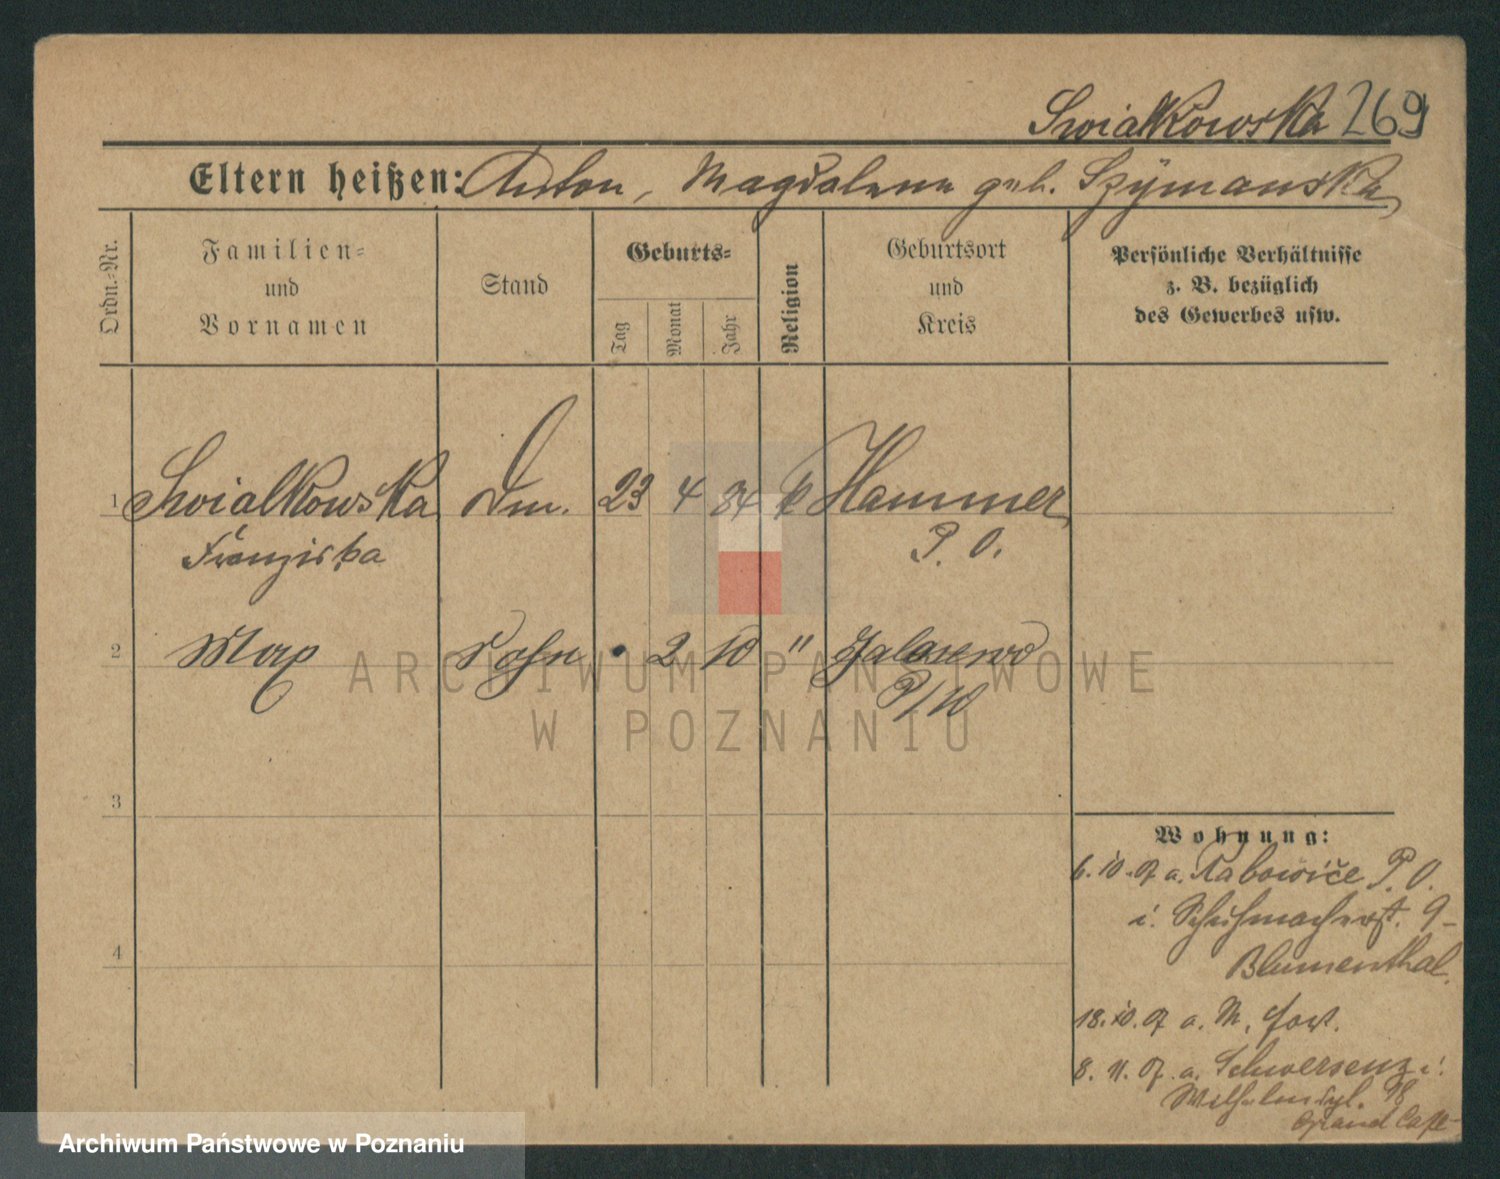 Swialkowska 269
Eltern heißen: Anton, Magdalena geb. Szÿmanska
Ordn.-Nr.
Familien-
und
Vornamen
Stand
Geburts-
Tag
Monat
Jahr
Religion
Geburtsort
und
Kreis
Persönliche Verhältnisse
z. B. bezüglich
des Gewerbes usw.
1 Swialkowska Dm. 23 4 84 k Hammer
Franziska P. O.
2 Max Sohn • 2 10 "
P/W
3
4
Wohnung:
6. 10. 07 a. Rabowice P. O.
i. Schuhmacherst. 9-
Blumenthal.
18. 10. 07 a. M. fort.
8. 11. 07. a. Schwersenz i.
Wilhelmspl. 18
Grand Cafe
ARCHIWUM PAŃSTWOWE
W POZNANIU
Archiwum Państwowe w Poznaniu